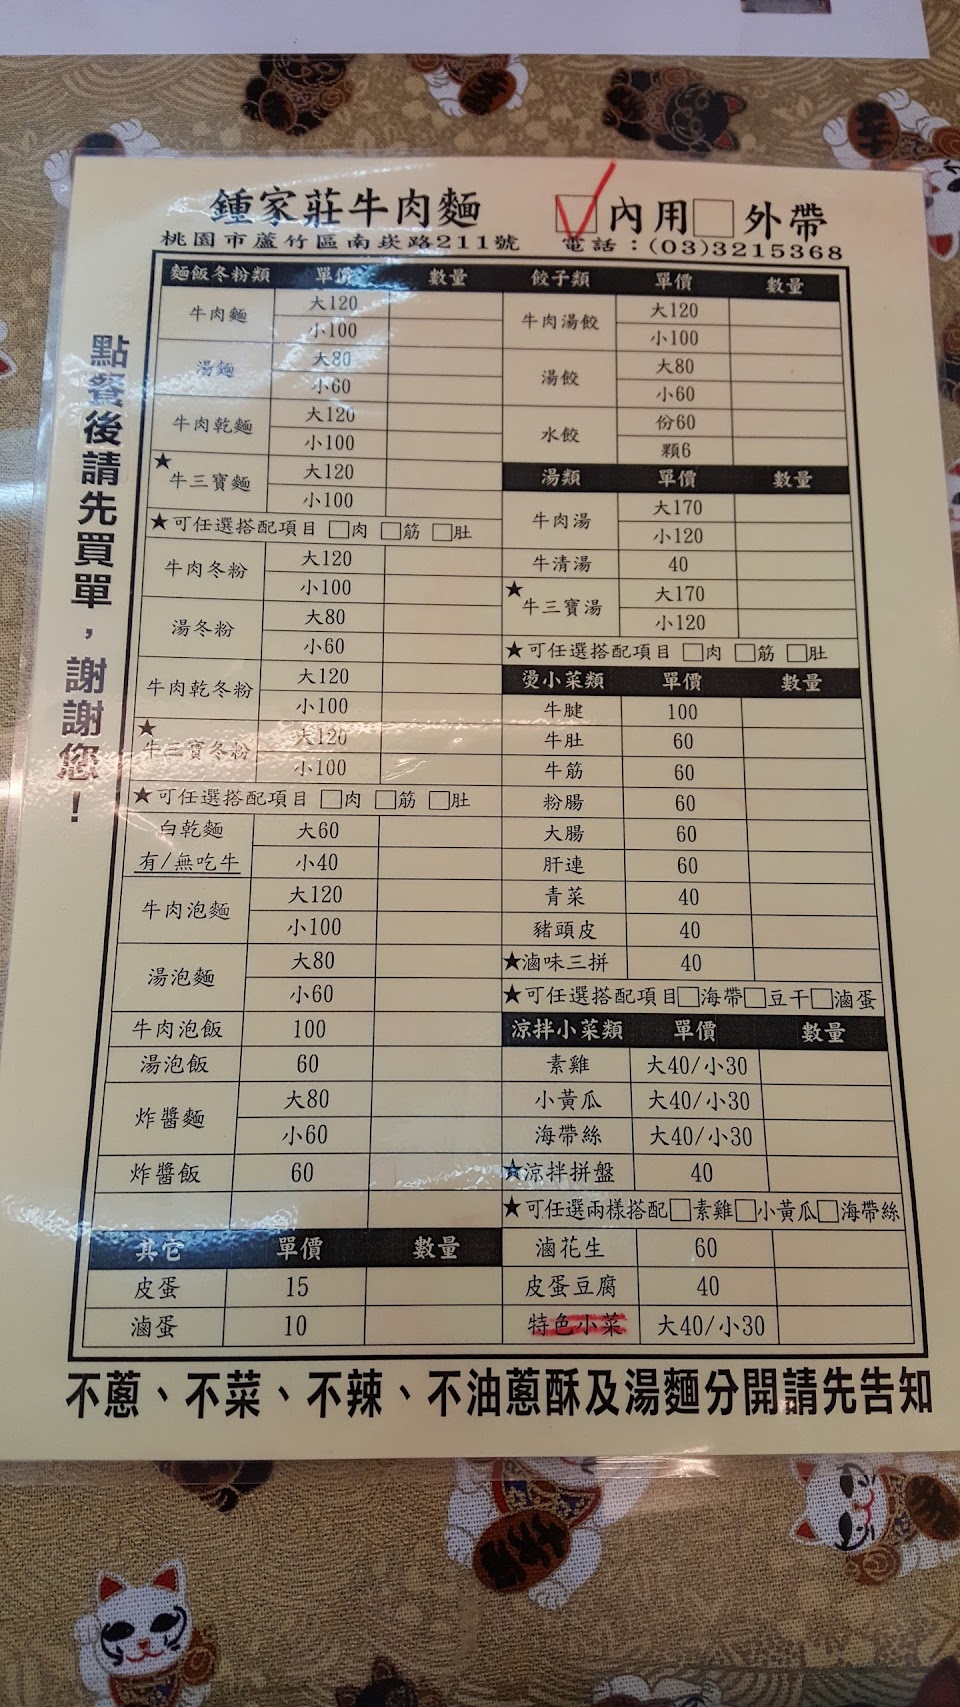 鍾家莊牛肉麵 內用 外帶
桃園市蘆竹區南崁路211號 電話：(03)3215368
點餐後請先買單，謝謝您！
麵飯冬粉類 單價 數量
牛肉麵 大120
小100
湯麵 大80
小60
牛肉乾麵 大120
小100
★牛三寶麵 大120
小100
★可任選搭配項目 □肉 □筋 □肚
牛肉冬粉 大120
小100
湯冬粉 大80
小60
牛肉乾冬粉 大120
小100
★牛三寶冬粉 大120
小100
★可任選搭配項目 □肉 □筋 □肚
白乾麵 大60
有/無吃牛 小40
牛肉泡麵 大120
小100
湯泡麵 大80
小60
牛肉泡飯 100
湯泡飯 60
炸醬麵 大80
小60
炸醬飯 60
其它 單價 數量
皮蛋 15
滷蛋 10
餃子類 單價 數量
牛肉湯餃 大120
小100
湯餃 大80
小60
水餃 份60
顆6
湯類 單價 數量
牛肉湯 大170
小120
牛清湯 40
★牛三寶湯 大170
小120
★可任選搭配項目 □肉 □筋 □肚
燙小菜類 單價 數量
牛腱 100
牛肚 60
牛筋 60
粉腸 60
大腸 60
肝連 60
青菜 40
豬頭皮 40
★滷味三拼 40
★可任選搭配項目□海帶□豆干□滷蛋
涼拌小菜類 單價 數量
素雞 大40/小30
小黃瓜 大40/小30
海帶絲 大40/小30
★涼拌拼盤 40
★可任選兩樣搭配□素雞□小黃瓜□海帶絲
滷花生 60
皮蛋豆腐 40
特色小菜 大40/小30
不蔥、不菜、不辣、不油蔥酥及湯麵分開請先告知